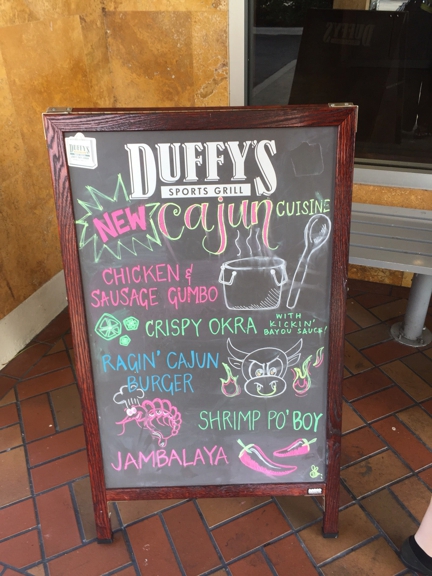 DUFFY'S
SPORTS GRILL
NEW cajun CUISINE
CHICKEN &
SAUSAGE GUMBO
CRISPY OKRA
WITH
KICKIN'
BAYOU SAUCE!
RAGIN' CAJUN
BURGER
SHRIMP PO' BOY
JAMBALAYA
DUFFY'S